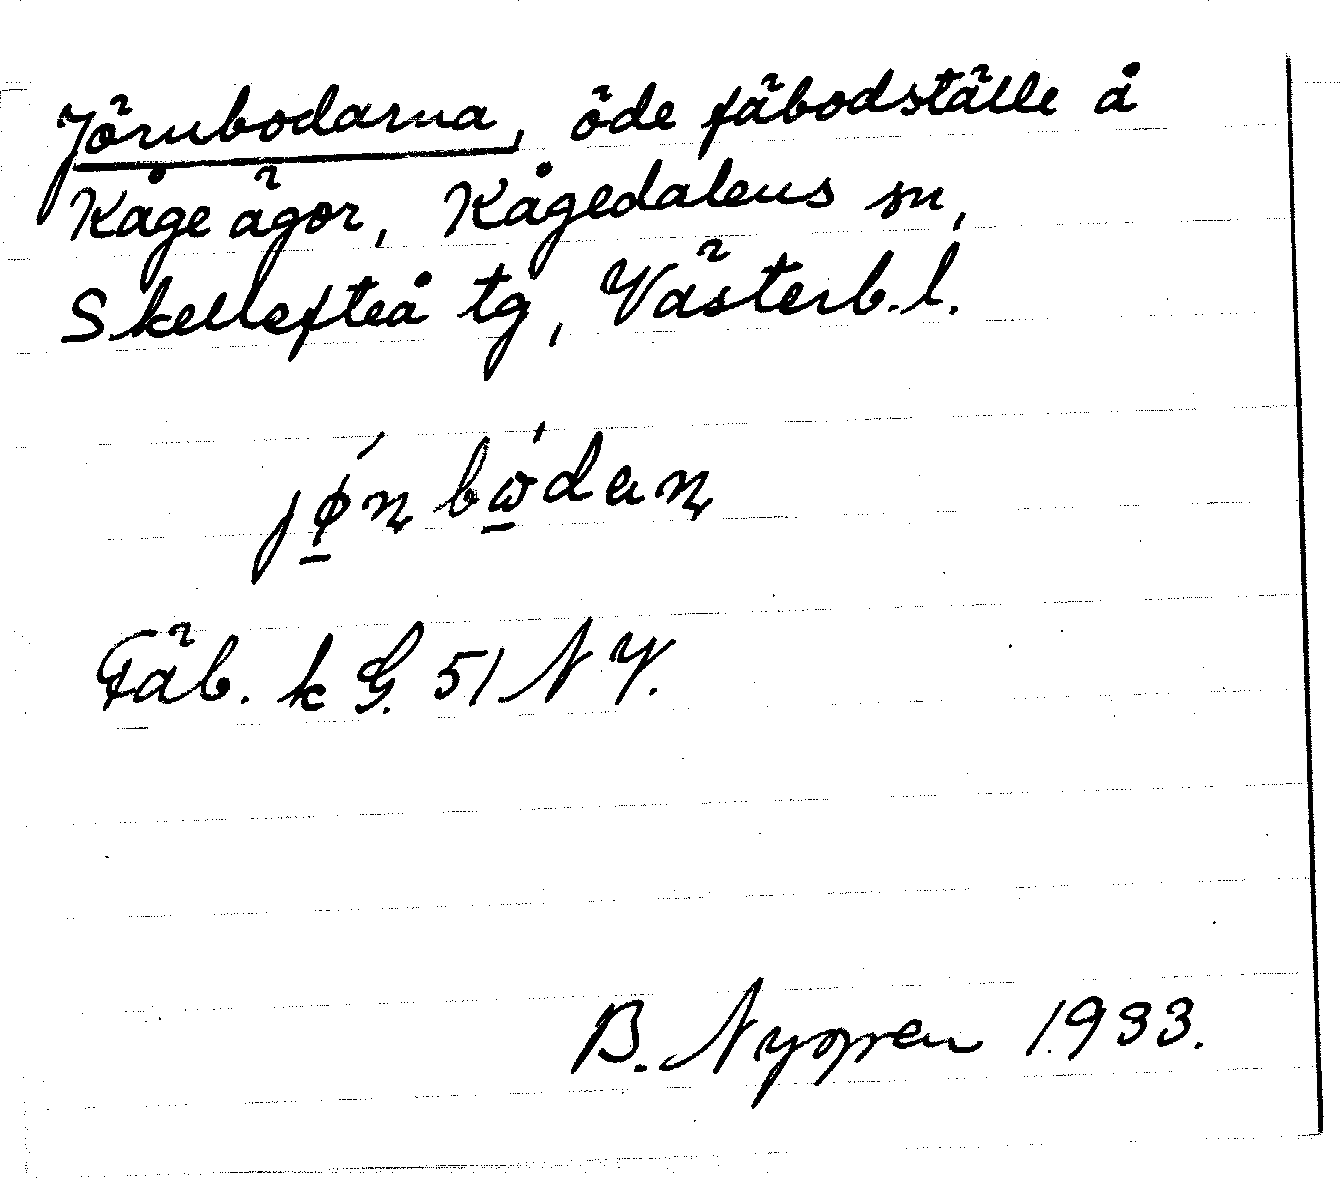 Jörnbodarna, öde fäbodställe å
Kåge ägor, Kågedalens sn,
Skellefteå tg, Västerb.l.
jǿ̱ɳbώ̱daɳ
Fäb. k G. 51 N V.
B. Nygren 1933.